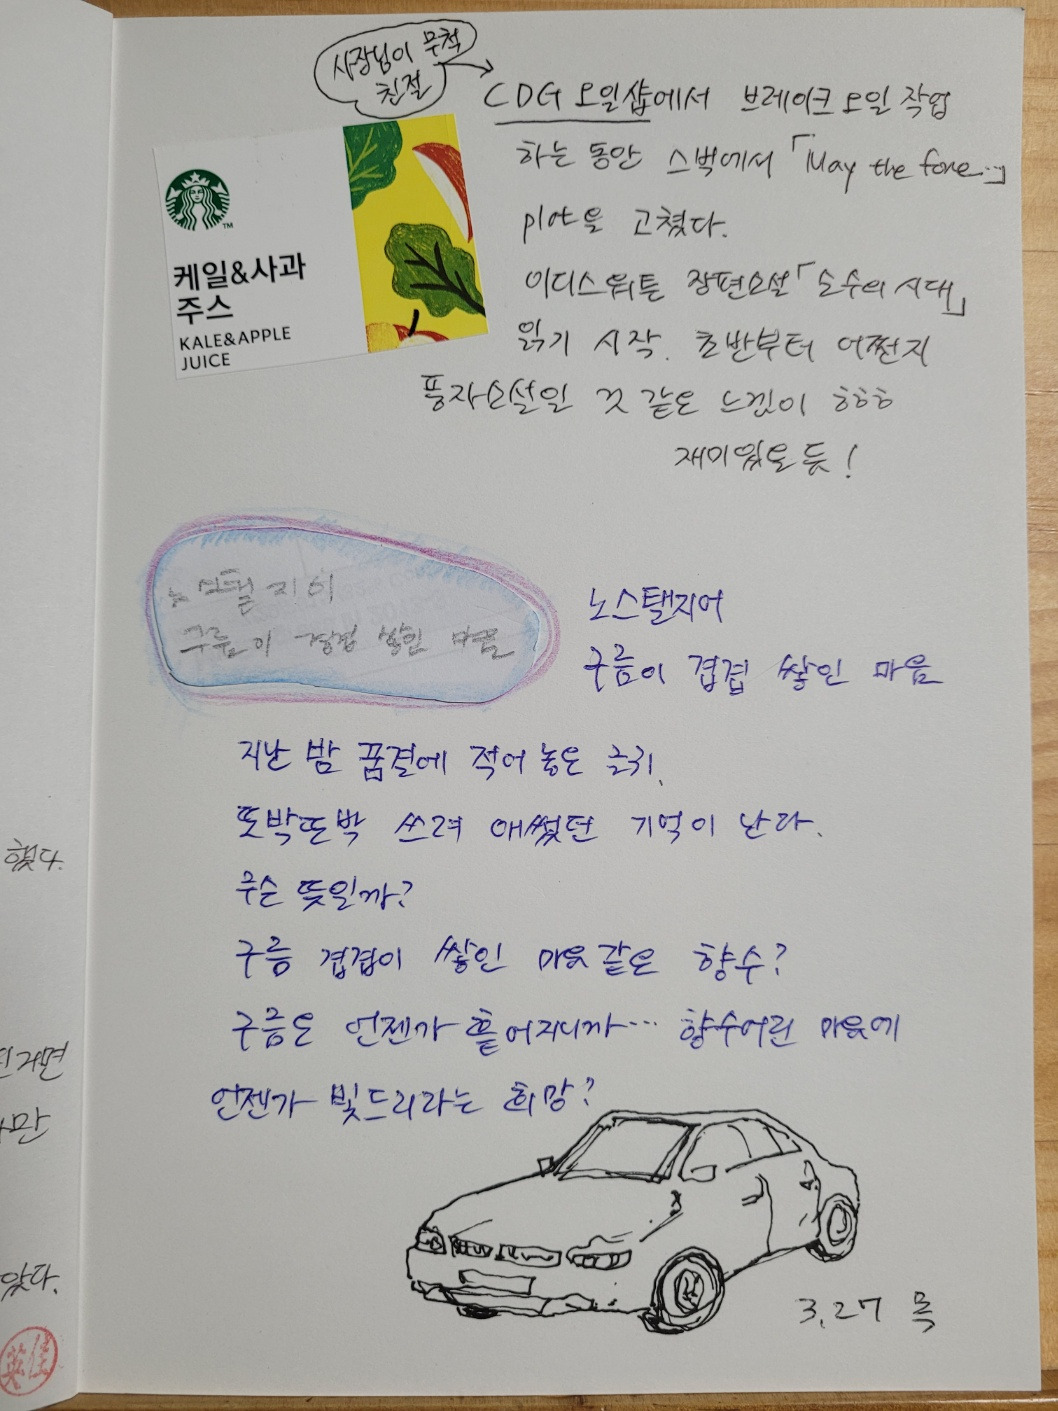 사장님이 무척
친절
CDG 오일샵에서 브레이크오일 작업
하는 동안 스벅에서 「May the fore…」
plot을 고쳤다.
이디스워튼 장편소설 「순수의 시대」
읽기 시작. 초반부터 어쩐지
풍자소설일 것 같은 느낌이 ㅎㅎㅎ
재미있을 듯!
케일&사과
주스
KALE&APPLE
JUICE
노스탤지어
구름이 겹겹 쌓인 마음
노스탤지어
구름이 겹겹 쌓인 마음
지난 밤 꿈결에 적어 놓은 글귀.
또박또박 쓰려 애썼던 기억이 난다.
무슨 뜻일까?
구름 겹겹이 쌓인 마음같은 향수?
구름은 언젠가 흩어지니까… 향수어린 마음에
언젠가 빛드리라는 희망?
3.27 목
했다.
거면
만
았다.